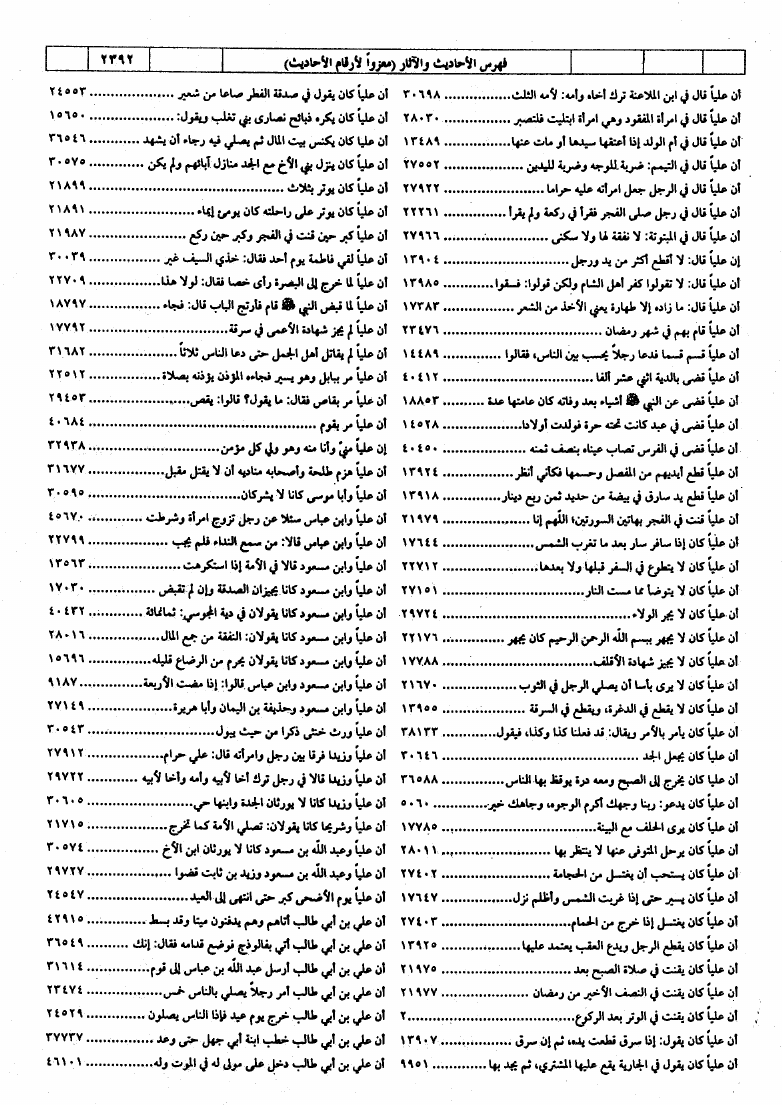 فهرس الأحاديث والآثار (معزواً لأرقام الأحاديث)
٢٣٩٢
أن علياً قال في ابن الملاعنة ترك أخاه وأمه: لأمه الثلث ................ ٣٠٦٩٨
أن علياً قال في امرأة المفقود وهي امرأة ابتليت فلتصبر ................ ٢٨٠٣٠
أن علياً قال في أم الولد إذا أعتقها سيدها أو مات عنها ................ ١٣٤٨٩
أن علياً قال في التيمم: ضربة للوجه وضربة لليدين ................ ٢٧٥٥٢
أن علياً قال في الرجل جعل امرأته عليه حراما ................ ٢٧٩٢٢
أن علياً قال في رجل صلى الفجر فقرأ في ركعة ولم يقرأ ................ ٢٢٢٦١
أن علياً قال في المبتوتة: لا نفقة لها ولا سكنى ................ ٢٧٩٦٦
إن علياً قال: لا أقطع أكثر من يد ورجل ................ ١٣٩٠٤
أن علياً قال: لا تقولوا كفر أهل الشام ولكن قولوا: فسقوا ................ ١٣٩٨٥
أن علياً قال: ما زاده إلا طهارة يعني الأخذ من الشعر ................ ١٧٣٨٣
أن علياً قام بهم في شهر رمضان ................ ٢٣٤٧٦
أن علياً قسم قسما فدعا رجلاً يحسب بين الناس، فقالوا ................ ١٤٤٨٩
أن علياً قضى بالدية اثني عشر ألفا ................ ٤٠٤١٢
أن علياً قضى عن النبي ﷺ أشياء بعد وفاته كان عامتها عدة ................ ١٨٨٥٣
أن علياً قضى في عبد كانت تحته حرة فولدت أولادا ................ ١٤٥٢٨
أن علياً قضى في الفرس تصاب عيناه بنصف ثمنه ................ ٤٠٤٥٠
أن علياً قطع أيديهم من المفصل وحسمها فكأني أنظر ................ ١٣٩٢٤
أن علياً قطع يد سارق في بيضة من حديد ثمن ربع دينار ................ ١٣٩١٨
أن علياً قنت في الفجر بهاتين السورتين؛ اللهم إنا ................ ٢١٩٧٩
أن علياً كان إذا سافر سار بعد ما تغرب الشمس ................ ١٧٦٤٤
أن علياً كان لا يتطوع في السفر قبلها ولا بعدها ................ ٢٢٧١٢
أن علياً كان لا يتوضأ مما مست النار ................ ٢٧١٥١
أن علياً كان لا يجر الولاء ................ ٢٩٧٢٤
أن علياً كان لا يجهر ببسم الله الرحمن الرحيم كان يجهر ................ ٢٢١٧٦
أن علياً كان لا يجيز شهادة الأقلف ................ ١٧٧٨٨
أن علياً كان لا يرى بأسا أن يصلي الرجل في الثوب ................ ٢١٦٧٠
أن علياً كان لا يقطع في الدغرة، ويقطع في السرقة ................ ١٣٩٥٥
أن علياً كان يأمر بالأمر ويقال: قد فعلنا كذا وكذا، فيقول ................ ٣٨١٣٣
أن علياً كان يجعل الجد ................ ٣٠٦٤٦
أن علياً كان يخرج إلى الصبح ومعه درة يوقظ بها الناس ................ ٣٦٥٨٨
أن علياً كان يدعو: ربنا وجهك أكرم الوجوه، وجاهك خير ................ ٥٠٦٠
أن علياً كان يرى الحلف مع البينة ................ ١٧٧٨٥
أن علياً كان يرحل المتوفى عنها لا ينتظر بها ................ ٢٨٠١١
أن علياً كان يستحب أن يغتسل من الحجامة ................ ٢٧٤٠٢
أن علياً كان يسير حتى إذا غربت الشمس وأظلم نزل ................ ١٧٦٤٧
أن علياً كان يغتسل إذا خرج من الحمام ................ ٢٧٤٠٣
أن علياً كان يقطع الرجل ويدع العقب يعتمد عليها ................ ١٣٩٢٥
أن علياً كان يقنت في صلاة الصبح بعد ................ ٢١٩٧٥
أن علياً كان يقنت في النصف الأخير من رمضان ................ ٢١٩٧٧
أن علياً كان يقنت في الوتر بعد الركوع ................ ٢
أن علياً كان يقول: إذا سرق قطعت يده، ثم إن سرق ................ ١٣٩٠٧
أن علياً كان يقول في الجارية يقع عليها المشتري، ثم يجد بها ................ ٩٩٥١
أن علياً كان يقول في صدقة الفطر صاعا من شعير ................ ٢٤٥٥٣
أن علياً كان يكره ذبائح نصارى بني تغلب ويقول: ................ ١٥٦٥٠
أن علياً كان يكنس بيت المال ثم يصلي فيه رجاء أن يشهد ................ ٣٦٥٤٦
أن علياً كان ينزل بني الأخ مع الجد منازل آبائهم ولم يكن ................ ٣٠٥٧٥
أن علياً كان يوتر بثلاث ................ ٢١٨٩٩
أن علياً كان يوتر على راحلته كان يومئ إيماء ................ ٢١٨٩١
أن علياً كبر حين قنت في الفجر وكبر حين ركع ................ ٢١٩٨٧
أن علياً لقي فاطمة يوم أحد فقال: خذي السيف غير ................ ٣٠٠٣٩
أن علياً لما خرج إلى البصرة رأى خصا فقال: لولا هذا ................ ٢٢٧٠٩
أن علياً لما قبض النبي ﷺ قام فأرتج الباب قال: فجاء ................ ١٨٧٩٧
أن علياً لم يجز شهادة الأعمى في سرقة ................ ١٧٧٩٢
أن علياً لم يقاتل أهل الجمل حتى دعا الناس ثلاثاً ................ ٣١٦٨٢
أن علياً مر ببابل وهو يسير فجاءه المؤذن يؤذنه بصلاة ................ ٢٢٥١٢
أن علياً مر بقاص فقال: ما يقول؟ قالوا: يقص ................ ٢٩٤٥٣
أن علياً مر بقوم ................ ٤٠٦٨٤
إن علياً مني وأنا منه وهو ولي كل مؤمن ................ ٣٢٩٣٨
أن علياً هزم طلحة وأصحابه مناديه أن لا يقتل مقبل ................ ٣١٦٧٧
أن علياً وأبا موسى كانا لا يشركان ................ ٣٠٥٩٥
أن علياً وابن عباس سئلا عن رجل تزوج امرأة وشرطت ................ ٤٥٦٧٠
أن علياً وابن عباس قالا: من سمع النداء فلم يجب ................ ٢٢٧٩٩
أن علياً وابن مسعود قالا في الأمة إذا استكرهت ................ ١٣٥٦٣
أن علياً وابن مسعود كانا يجيزان الصدقة وإن لم تقبض ................ ١٧٠٣٠
أن علياً وابن مسعود كانا يقولان في دية المجوسي: ثمانمائة ................ ٤٠٤٣٢
أن علياً وابن مسعود كانا يقولان: النفقة من جمع المال ................ ٢٨٠١٦
أن علياً وابن مسعود كانا يقولان يحرم من الرضاع قليله ................ ١٥٦٩٦
أن علياً وابن مسعود وابن عباس قالوا: إذا مضت الأربعة ................ ٩١٨٧
أن علياً وابن مسعود وحذيفة بن اليمان وأبا هريرة ................ ٢٧١٤٩
أن علياً ورث خنثى ذكرا من حيث يبول ................ ٣٠٥٤٣
أن علياً وزيدا فرقا بين رجل وامرأته قال: علي حرام ................ ٢٧٩١٢
أن علياً وزيدا قالا في رجل ترك أخا لأبيه وأمه وأخا لأبيه ................ ٢٩٧٢٢
أن علياً وزيدا كانا لا يورثان الجدة وابنها حي ................ ٣٠٦٠٥
أن علياً وشريحا كانا يقولان: تصلي الأمة كما تخرج ................ ٢١٧١٥
أن علياً وعبد الله بن مسعود كانا لا يورثان ابن الأخ ................ ٣٠٥٧٤
أن علياً وعبد الله بن مسعود وزيد بن ثابت قضوا ................ ٢٩٧٢٧
أن علياً يوم الأضحى كبر حتى انتهى إلى العيد ................ ٢٤٥٤٧
أن علي بن أبي طالب أتاهم وهم يدفنون ميتا وقد بسط ................ ٤٢٩١٥
أن علي بن أبي طالب أتي بفالوذج فوضع قدامه فقال: إنك ................ ٣٦٥٤٩
أن علي بن أبي طالب أرسل عبد الله بن عباس إلى قوم ................ ٣١٦١٤
أن علي بن أبي طالب أمر رجلاً يصلي بالناس خمس ................ ٢٣٤٧٤
أن علي بن أبي طالب خرج يوم عيد فإذا الناس يصلون ................ ٢٤٥٢٩
أن علي بن أبي طالب خطب ابنة أبي جهل حتى وعد ................ ٣٧٧٣٧
أن علي بن أبي طالب دخل على مولى له في الموت وله ................ ٤٦١٠١